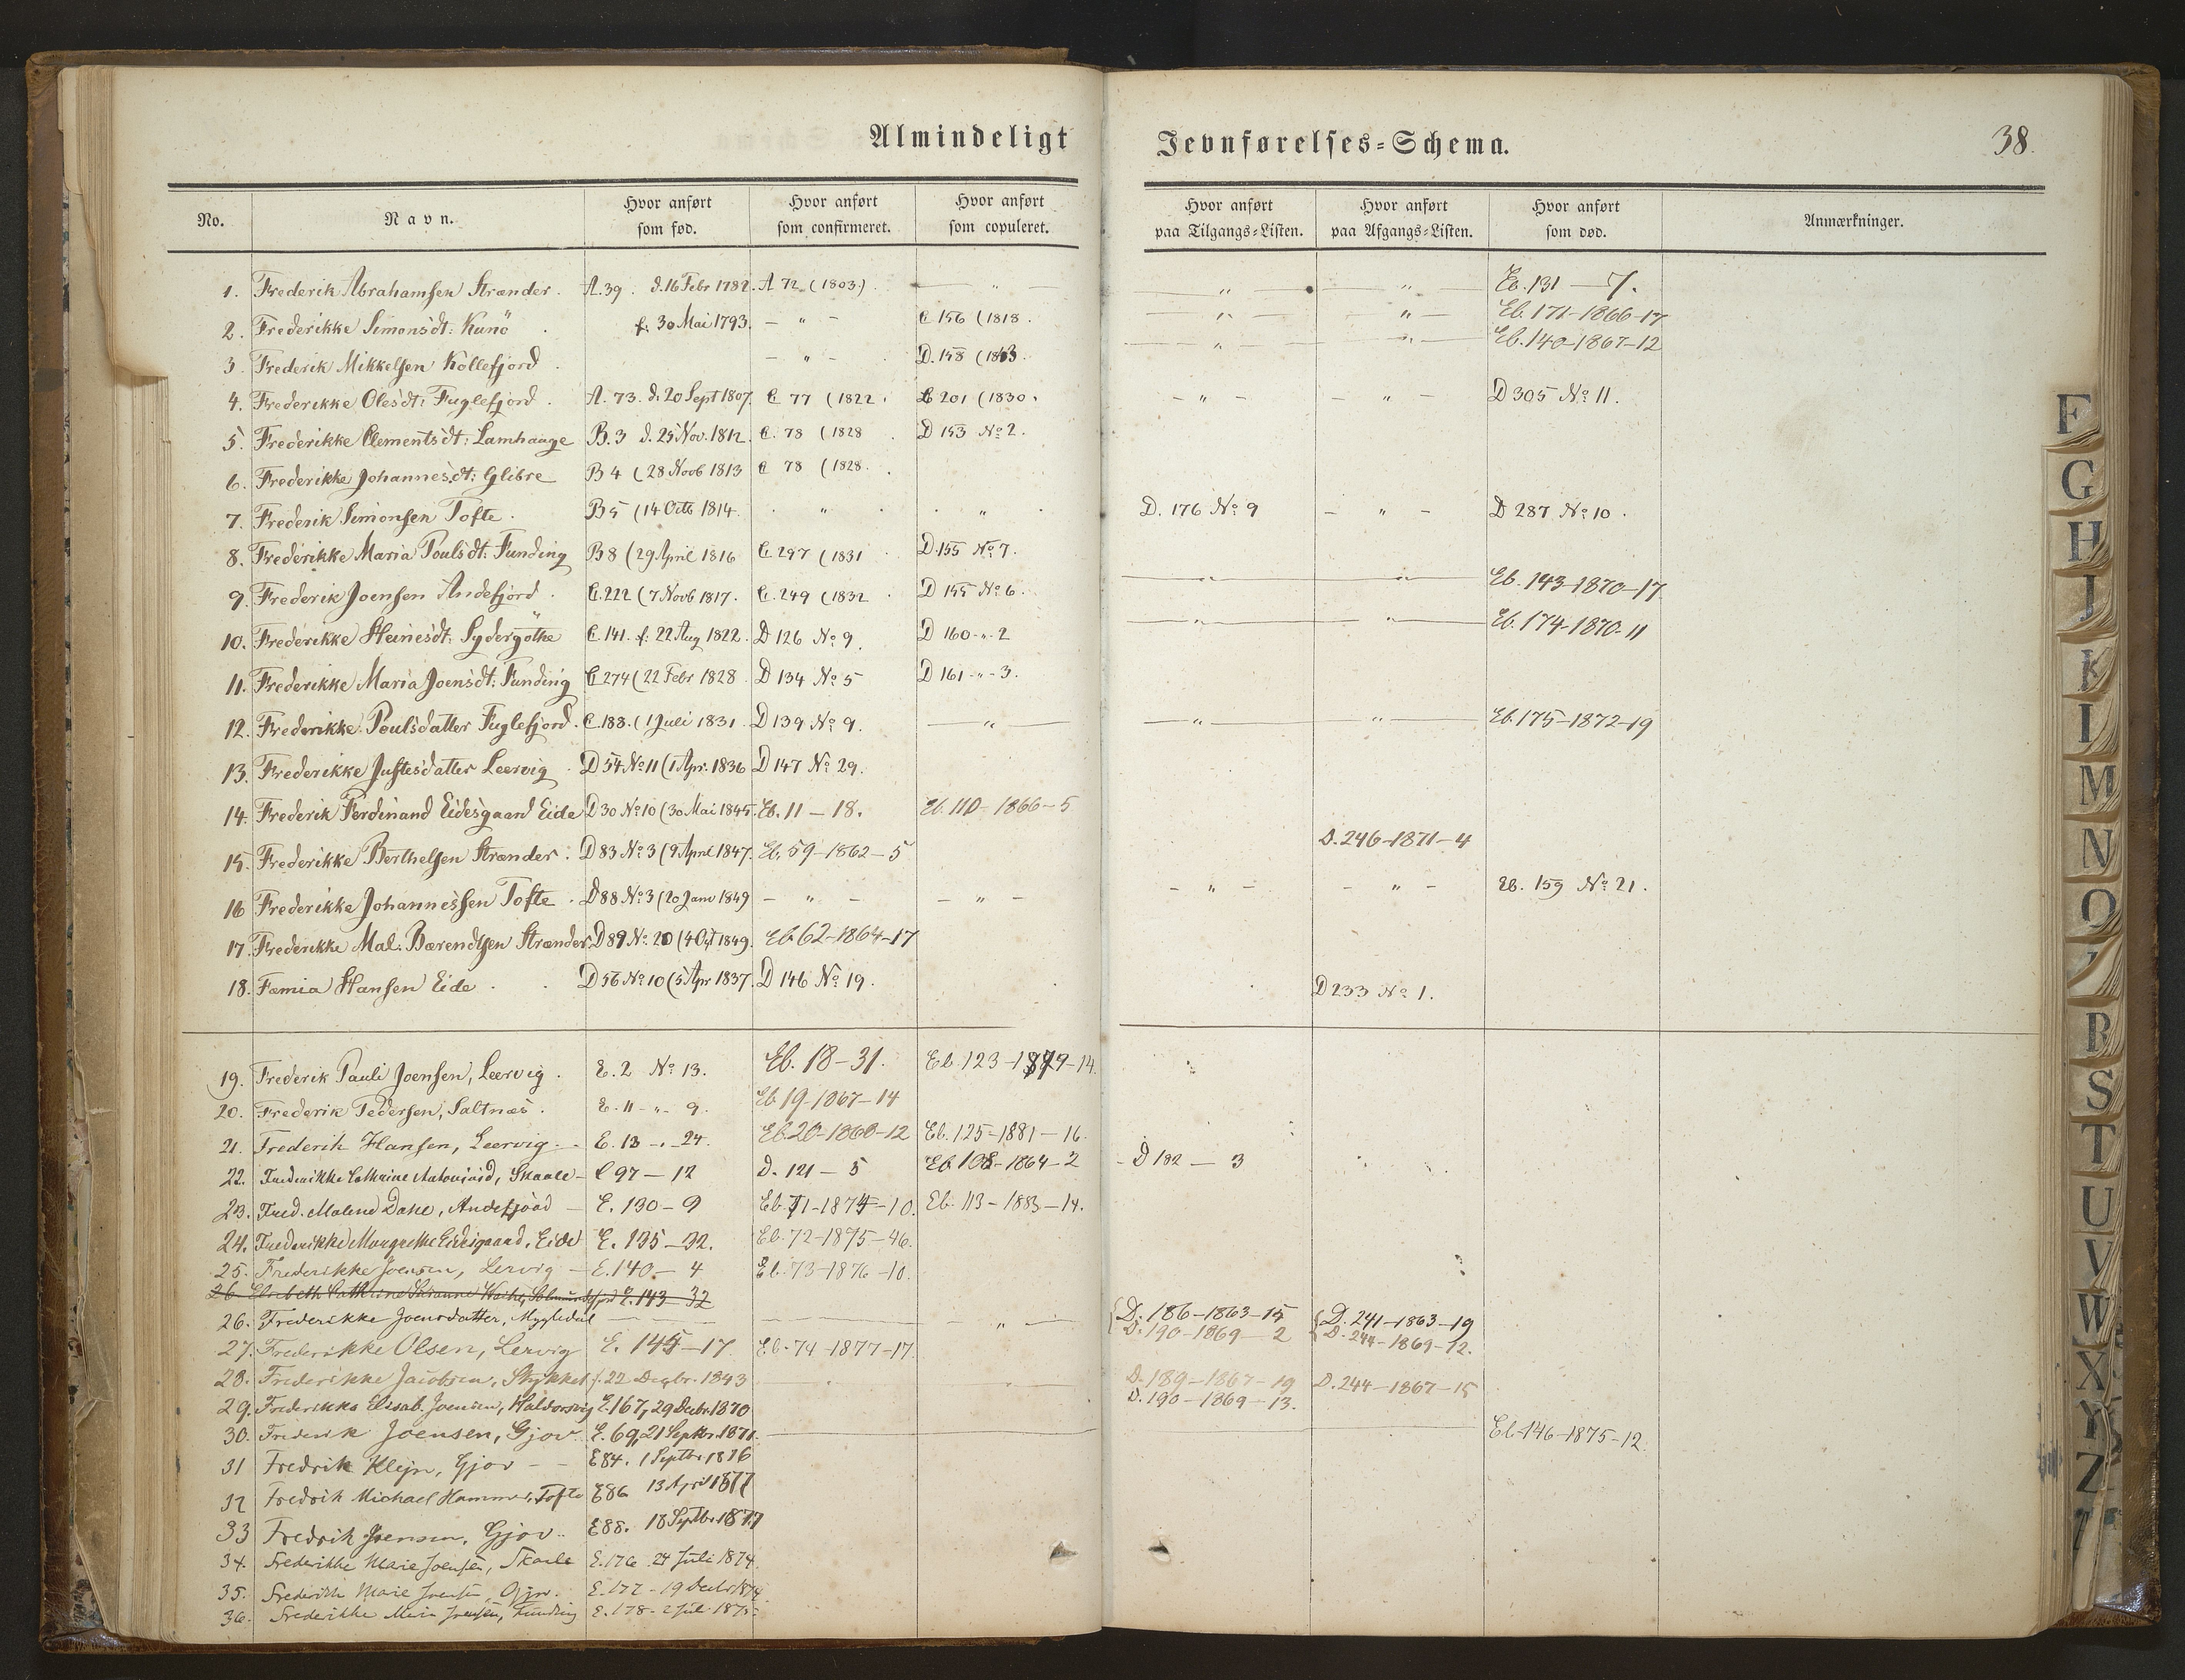 Almindeligt Jevnførelses-Schema. 38.
No. Navn. Hvor anført som fød. Hvor anført som confirmeret. Hvor anført som copuleret. Hvor anført paa Tilgangs-Listen. Hvor anført paa Afgangs-Listen. Hvor anført som død. Anmærkninger.
1. Frederik Abrahamsen Strænder. A. 39. d. 16 Febr 1782. A 72 (1803) — " — — " — — " — Eb. 131 — 7.
2. Frederikke Simonsdt: Kunö f. 30 Mai 1793. — " — C 156 (1818. — " — — " — Eb. 171-1866-17
3. Frederik Mikkelsen Kollefjord — " — D. 158 (1843. — " — — " — Eb. 140-1867-12
4. Frederikke Olesdt: Fuglefjord. A. 73. d. 20 Sept 1807. C 77 (1822. C 201 (1830. — " — — " — D 305 No 11.
5. Frederikke Clementsdt: Lamhauge B. 3 d. 25 Nov. 1812. C. 78 (1828. D 153 No 2.
6. Frederikke Johannesdt: Glibre B 4 (28 Novb 1813 C 78 (1828.
7. Frederik Simonsen Tofte. B 5 (14 Octb 1814. " " D. 176 No 9 — " — D 287 No 10.
8. Frederikke Maria Poulsdt: Funding B 8 (29 April 1816 C. 297 (1831 D. 155 No 7.
9. Frederik Joensen Andefjord. C. 222 (7 Novb 1817. C. 249 (1832 D 155 No 6. — " — — " — Eb. 143-1870-17
10. Frederikke Heinesdt: Sydergöthe C. 141. f. 22 Aug 1822. D 126 No 9. D 160 - " - 2 — " — — " — Eb. 174-1870-11
11. Frederikke Maria Joensdt: Funding C 274 (22 Febr 1828. D 134 No 5 D 161 - " - 3.
12. Frederikke Poulsdatter Fuglefjord. C. 188. (1 Juli 1831. D 139 No 9. — " — — " — — " — Eb. 175-1872-19
13. Frederikke Justesdatter Leervig. D 54 No 11 (1 Apr. 1836 D 147 No 29.
14. Frederik Ferdinand Eidesgaard Eide D 30 No 10 (30 Mai 1845. Eb. 11 — 18. Eb. 110-1866-5
15. Frederikke Berthelsen Strænder. D 83 No 3 (9 April 1847. Eb. 59-1862-5 D. 246-1871-4
16 Frederikke Johannessen Tofte. D 88 No 3 (20 Janv 1849 — " — — " — — " — — " — Eb. 159 No 21.
17. Frederikke Mal: Bærendtsen Strænder. D 89 No 20 (4 Oct 1849. Eb. 62-1864-17
18. Fæmia Hansen Eide. D 56 No 10 (5 Apr 1837. D 146 No 19. D 233 No 1.
19. Frederik Pauli Joensen, Leervig. E. 2 No 13. Eb. 18-31. Eb. 123-1879-14.
20. Frederik Pedersen, Saltnæs. E. 11 - " - 9. Eb 19-1867-14
21. Frederik Hansen, Leervig. E. 13 - " - 24. Eb. 20-1868-12 Eb. 125-1881-16.
22. Frederikke Cathrine, Skaale — C 97 — 12 D. 121 — 5 Eb. 108-1864-2 D 182 — 3
23. Fred. Malene Dahl, Andefjord — E. 130-9 Eb. 71-1874-10. Eb. 113-1883-14.
24. Frederikke Margrethe Eidesgaard, Eide E. 135-32. Eb. 72-1875-46.
25. Frederikke Joensen, Lervig — E. 140-4 Eb. 73-1876-10.
26 Elsebeth Cathrine Susanne E. 143-32
26. Frederikke Joensdatter, Mygledal — — " — D. 186-1863-15 D. 241-1863-19
D. 190-1869-2 D. 244-1869-12.
27. Frederikke Olsen, Lervig E. 145-17. Eb. 74-1877-17.
28. Frederikke Jacobsen, f. 22 Decbr. 1843 D. 189-1867-19 D. 244-1867-15
29. Frederikka Elisab. Joensen, Haldorsvig E. 167, 29 Decbr. 1870 D. 190-1869-13.
30. Frederik Joensen, Gjov E. 69, 21 Septbr. 1871. Eb. 146-1875-12.
31 Fredrik Klejn, Gjov — — E 84. 1 Septbr 1876
32 Fredrik Michael Hammer, Tofte E 86 13 April 1877
33 Fredrik Joensen, Gjov. E 88. 18 Septbr. 1877
34. Frederikke Marie Joensen, Skaale E. 176 24 Juli 1874.
35. Frederikke Marie Joensen, Gjov. E. 177 - 19 Decbr 1874
36. Frederikke Maria Joensen, Funding E. 178 - 2 Jul. 1875.
F
G
H
J
K
L
M
N
O
R
S
T
U
V
W
X
Y
Z